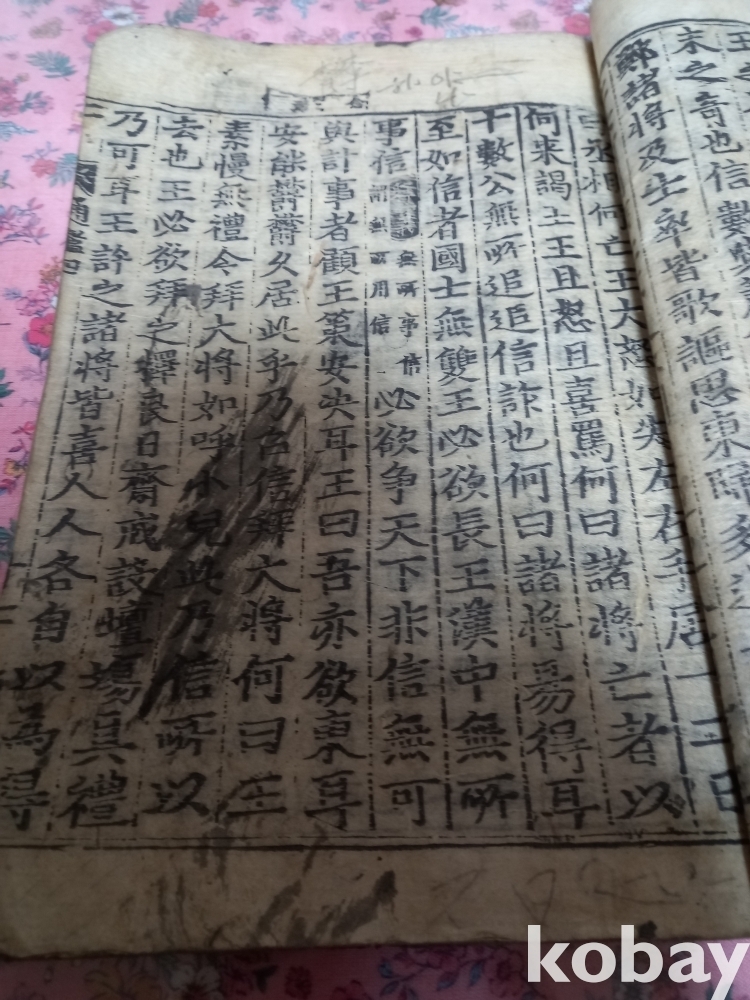 末之奇也信數與
鄭諸將及士卒皆歌謳思東歸多道
丞相何亡王大怒如失左右手居一二日
何来謁上王且怒且喜罵何曰諸將亡者以
十數公無所追追信詐也何曰諸將易得耳
至如信者國士無雙王必欲長王漢中無所
事信無所事信謂無所用信必欲争天下非信無可
與計事者顧王策安决耳王曰吾亦欲東耳
安能鬱鬱久居此乎乃召信拜大將何曰王
素慢無禮今拜大將如呼小兒此乃信所以
去也王必欲拜之擇良日齋戒設壇場具禮
乃可耳王許之諸將皆喜人人各自以為得
通鑑四
kobay